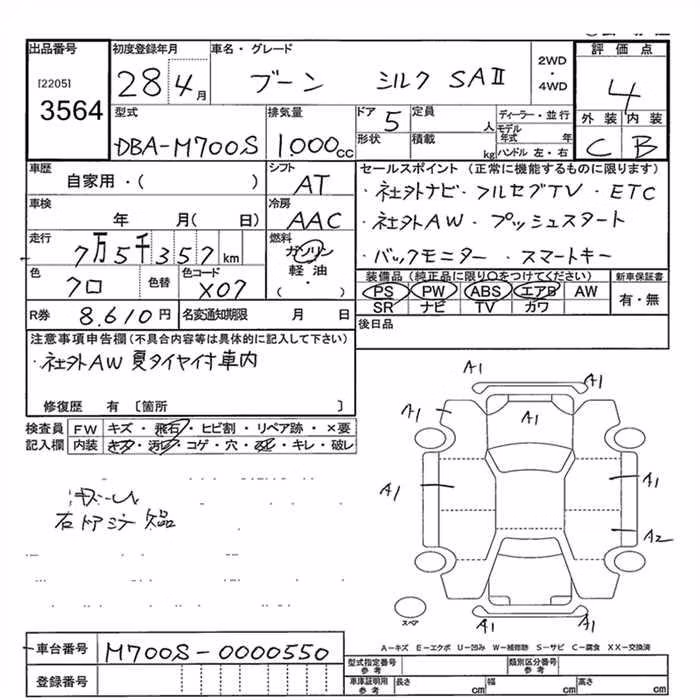 出品番号 初度登録年月 車名・グレード 2WD・4WD 評価点
[2205] 28 4月 ブーン シルク SAⅡ 4
3564
型式 排気量 ドア 5 定員 人 ディーラー・並行 外装 内装
DBA-M700S 1.000cc 形状 積載 kg モデル年式 年 C B
ハンドル 左・右
車歴 シフト セールスポイント (正常に機能するものに限ります)
自家用・( ) AT ・社外ナビ・フルセグTV・ETC
車検 冷房 ・社外AW・プッシュスタート
年 月( 日) AAC ・バックモニター・スマートキー
走行 燃料
7万5千357km ガソリン
軽油
( ・ )
色 色替 色コード 装備品 (純正品に限り○をつけてください) 新車保証書
クロ X07 PS PW ABS エアB AW 有・無
SR ナビ TV カワ
R券 8.610円 名変通知期限 月 日 後日品
注意事項申告欄(不具合内容等は具体的に記入して下さい)
・社外AW 夏タイヤ付 車内
修復歴 有 〔箇所 〕
検査員 FW キズ・飛石・ヒビ割・リペア跡・×要
記入欄 内装 キズ・汚レ・コゲ・穴・・キレ・破レ
右ドアミラー欠品
A1 A1
A1 A1
A1 A1
A2
A1 A1
スペア
A-キズ E-エクボ U-凹み W-補修跡 S-サビ C-腐食 XX-交換済
車台番号 M700S-0000550
登録番号
型式指定番号 参考 類別区分番号 参考
車庫証明用 参考 長さ cm 幅 cm 高さ cm